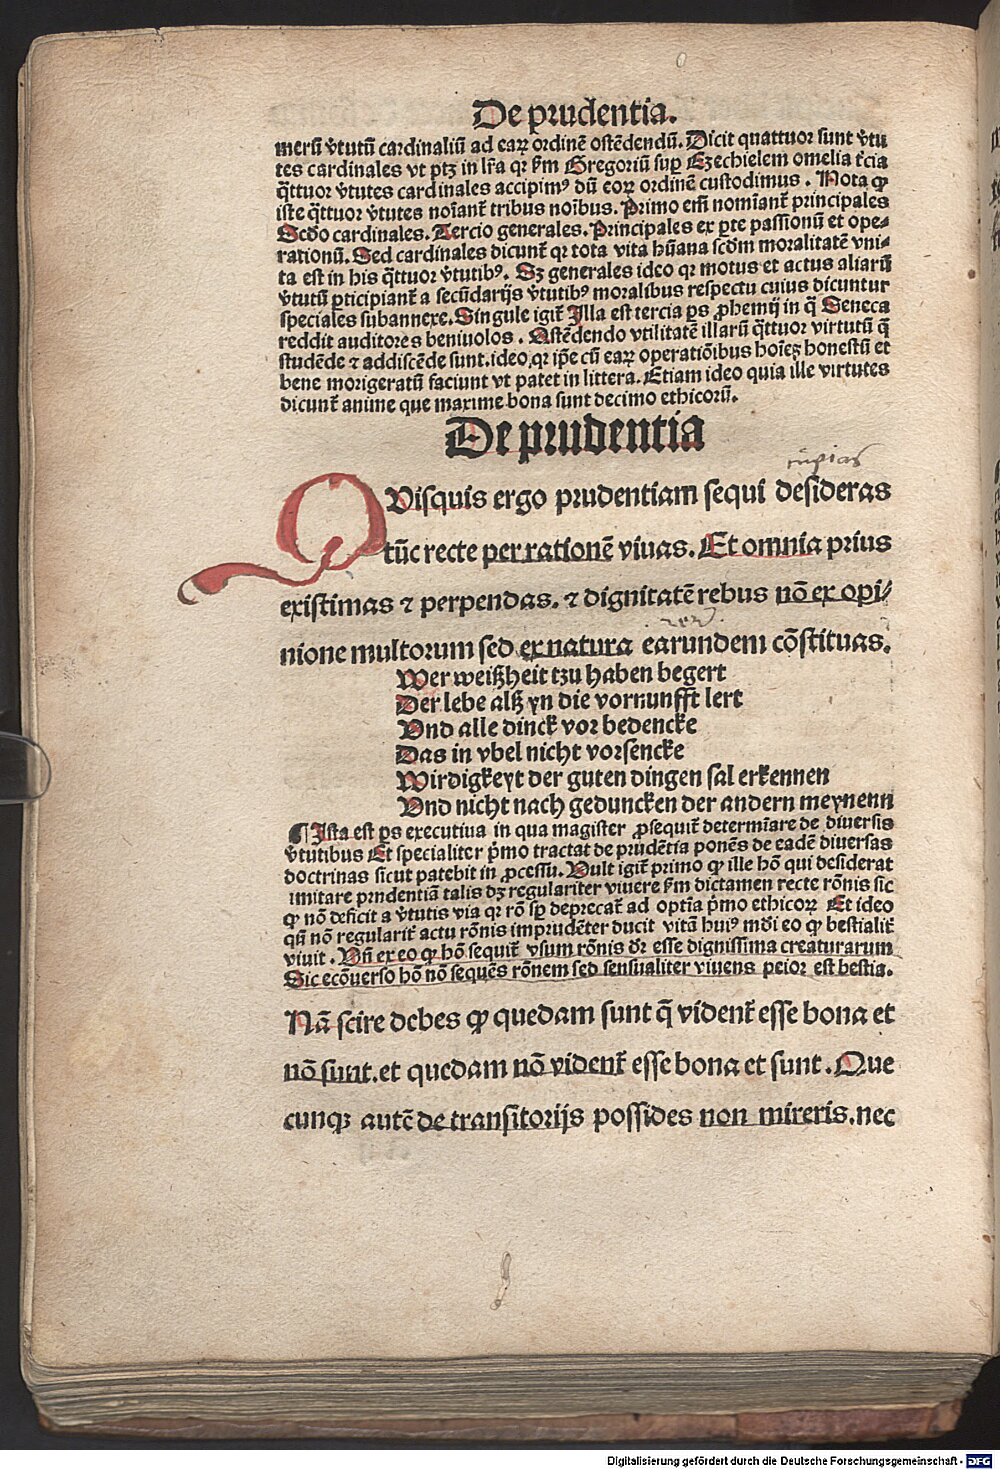 De prudentia.
merū v̄tutū cardinaliū ad eaꝝ ordinē ostēdendū. Dicit quattuor sunt v̄tu
tes cardinales vt ptꝫ in lr̄a qꝛ ẜm Gregoriū suꝑ Ezechielem omelia tr̄cia
q̄ttuor v̄tutes cardinales accipimꝰ dū eoꝝ ordinē custodimus . Nota ꝙ
iste q̄ttuor v̄tutes noīant᷑ tribus noībus. Primo em̄ nomīant᷑ principales
Scd̄o cardinales. Tercio generales. Principales ex ꝑte passionū et ope-
rationū. Sed cardinales dicunt᷑ qꝛ tota vita hūana scd̄m moralitatē vni-
ta est in his q̄ttuor v̄tutibꝰ. Sꝫ generales ideo qꝛ motus et actus aliarū
v̄tutū ꝑticipiant᷑ a secūdarijs v̄tutibꝰ moralibus respectu cuius dicuntur
speciales subannexe. Singule igit᷑ Illa est tercia ꝑs ꝓhemij in q̄ Seneca
reddit auditores beniuolos . Ostēdendo vtilitatē illarū q̄ttuor virtutū q̄
studēde ⁊ addiscēde sunt. ideo, qꝛ ip̄e cū eaꝝ operatiōibus hoīeꝫ honestū et
bene morigeratū faciunt vt patet in littera. Etiam ideo quia ille virtutes
dicunt᷑ anime que maxime bona sunt decimo ethicorū.
De prudentia
Quisquis ergo prudentiam sequi desideras
tūc recte per rationē viuas. Et omnia prius
existimas ⁊ perpendas. ⁊ dignitatē rebus nō ex opi-
nione multorum sed ex natura earundem cōstituas.
Wer weißheit tzu haben begert
Der lebe alß yn die vornunfft lert
Vnd alle dinck vor bedencke
Das in vbel nicht vorsencke
Wirdigkeyt der guten dingen sal erkennen
Vnd nicht nach geduncken der andern meynenn
¶ Ista est ꝑs executiua in qua magister ꝓsequit᷑ determīare de diuersis
v̄tutibus Et specialiter p̄mo tractat de prudētia ponēs de eadē diuersas
doctrinas sicut patebit in ꝓcessu. Vult igit᷑ primo ꝙ ille hō qui desiderat
imitare prudentiā talis dꝫ regulariter viuere ẜm dictamen recte rōnis sic
ꝙ nō deficit a v̄tutis via qꝛ rō sꝑ deprecat᷑ ad optīa p̄mo ethicoꝝ Et ideo
qn̄ nō regularit᷑ actu rōnis imprudēter ducit vitā huiꝰ mūdi eo ꝙ bestialit᷑
viuit . Vn̄ ex eo ꝙ hō sequit᷑ vsum rōnis dr̄ esse dignissima creaturarum
Sic ecōuerso hō nō sequēs rōnem sed sensualiter viuens peior est bestia.
Nā scire debes ꝙ quedam sunt q̄ vident᷑ esse bona et
nō sunt. et quedam nō vident᷑ esse bona et sunt . Que
cunqꝫ autē de transitorijs possides non mireris. nec
Digitalisierung gefördert durch die Deutsche Forschungsgemeinschaft - DFG